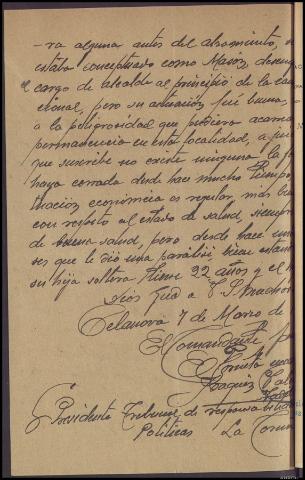 -ra alguna antes del alzamiento,
estaba conceptuado como Masón, desem
el cargo de alcalde al principio de la
cional, pero su actuación fué buena,
a la peligrosidad que pudiera acarrea
permanencia en esta localidad, a
que suscribe no existe ninguna la
haya cerrada desde hace mucho tiempo
tuación económica es regular más
con respeto al estado de salud, siempre
de buena salud, pero desde hace un
ses que le dió una paralisi
su hija soltera tiene 22 años y el
Dios Gud a V. S. muchos
Celanova 7 de Marzo de
El Comandante
Joaquin
Presidente Tribunal de responsabilidades
Politicas La Coruña